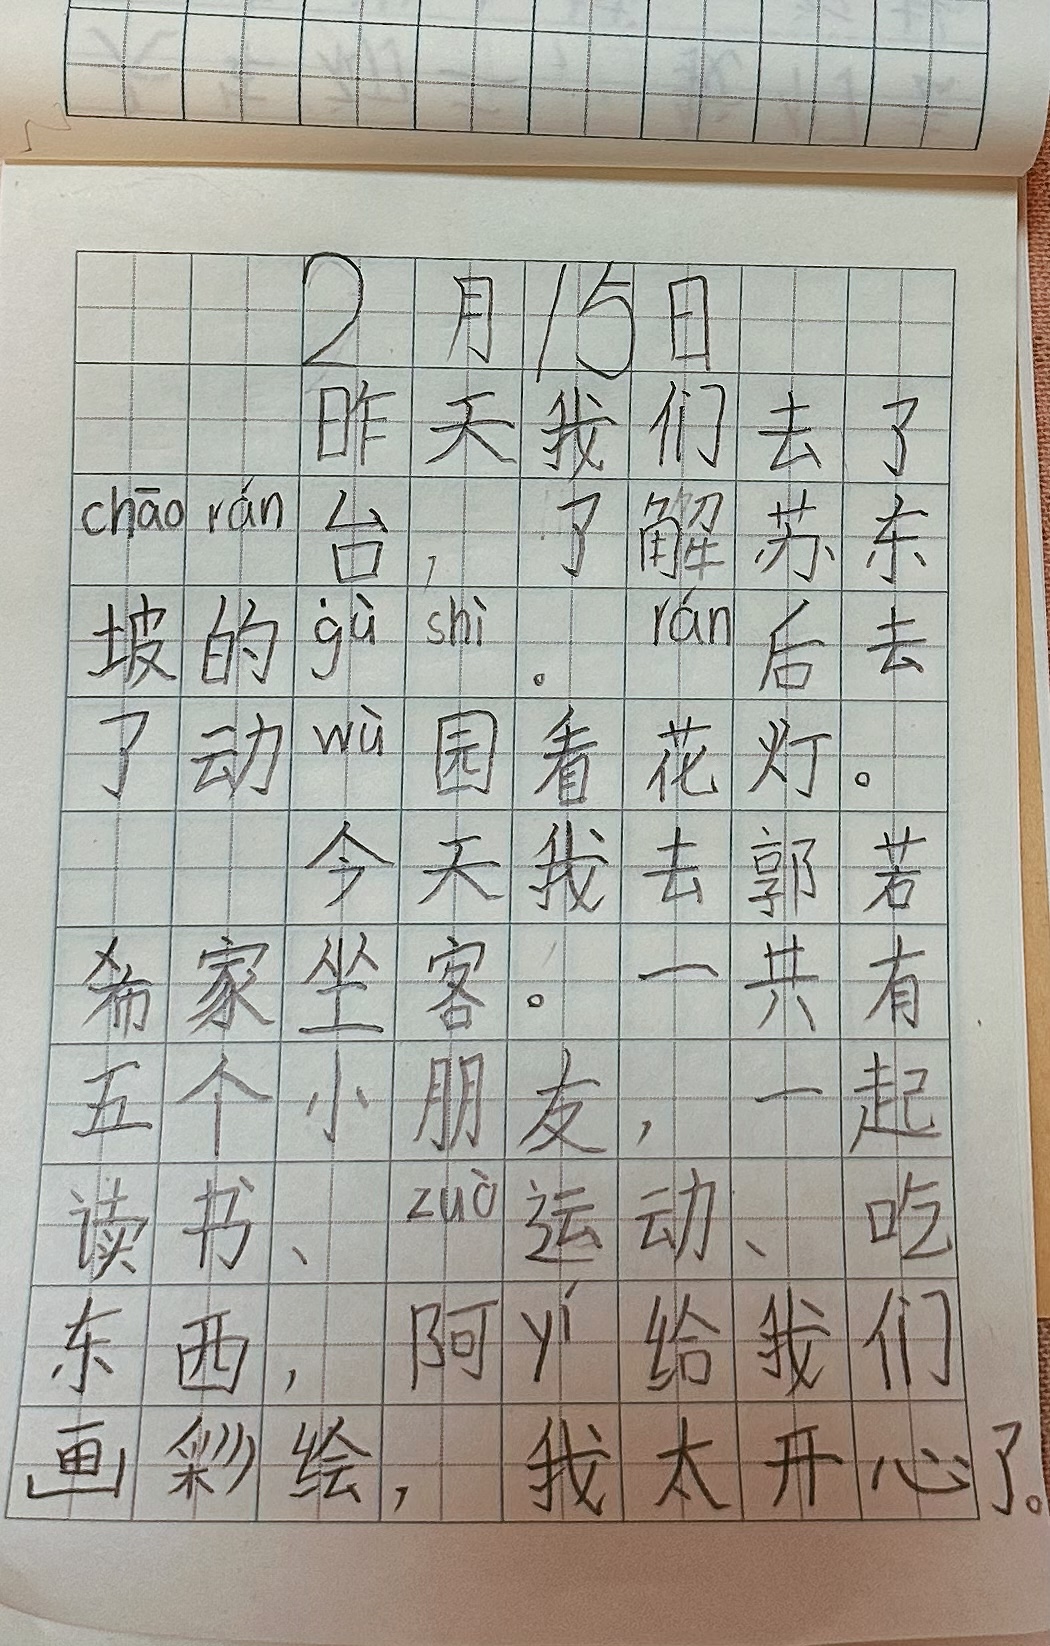 2月15日
昨天我们去了
chāo rán台，了解苏东
坡的gù shì。rán后去
了动wù园看花灯。
今天我去郭若
希家坐客。一共有
五个小朋友，一起
读书、zuò运动、吃
东西，阿yí给我们
画彩绘，我太开心了。